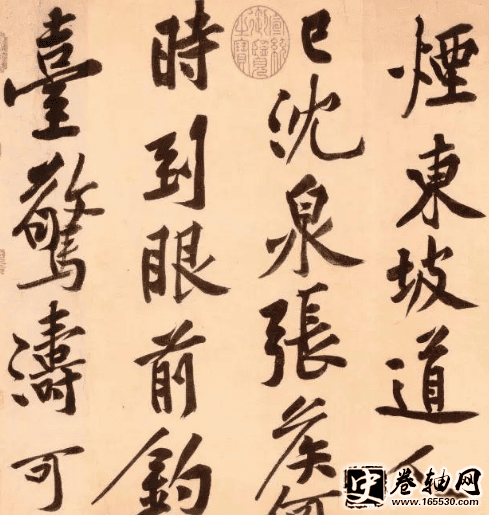 煙東坡道人
已沈泉張矦何
時到眼前釣
臺驚濤可
宣統御覽之寶
史 卷轴网
www.165530.com